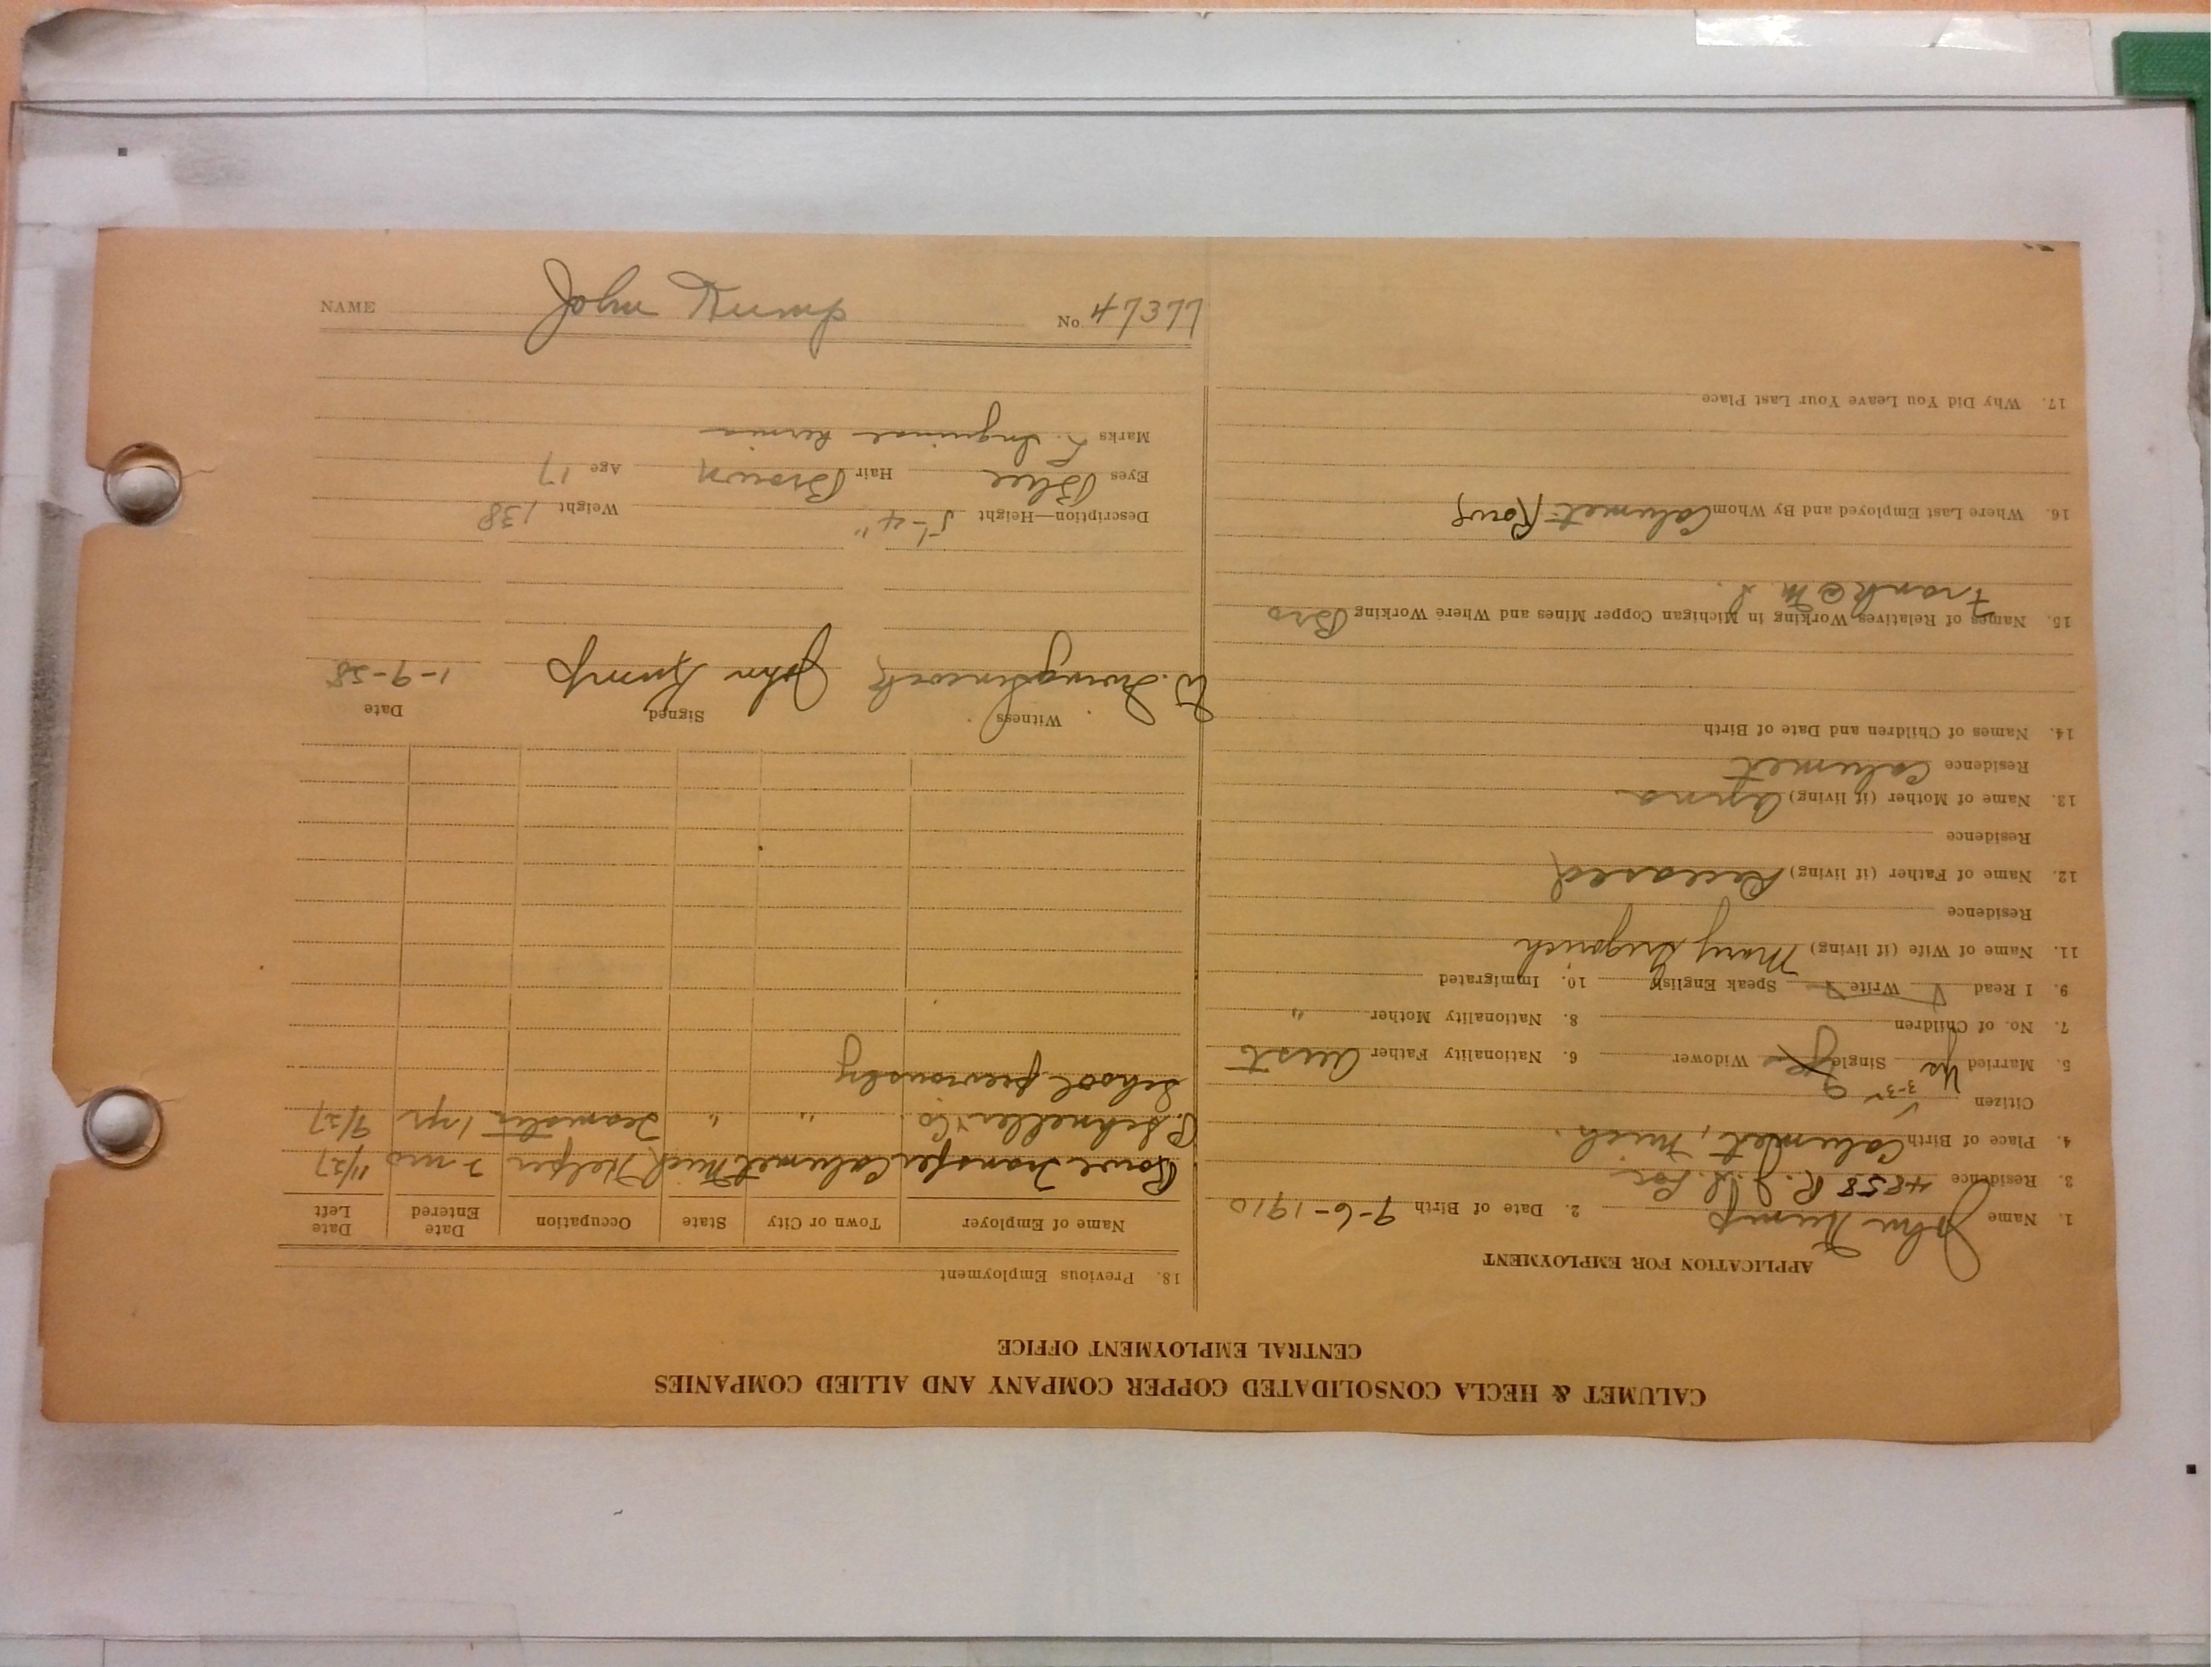 CALUMET & HECLA CONSOLIDATED COPPER COMPANY AND ALLIED COMPANIES
CENTRAL EMPLOYMENT OFFICE
APPLICATION FOR EMPLOYMENT
1. Name John Kump 2. Date of Birth 9-6-1910
3. Residence 4858 R. J.
4. Place of Birth Calumet, Mich.
Citizen
5. Married Yes Single Widower 6. Nationality Father Aust
7. No. of Children 8. Nationality Mother "
9. I Read Write Speak English 10. Immigrated
11. Name of Wife (if living) Mary
Residence
12. Name of Father (if living) Deceased
Residence
13. Name of Mother (if living) Agnes
Residence Calumet
14. Names of Children and Date of Birth
15. Names of Relatives Working in Michigan Copper Mines and Where Working Bro
Frank @ M.
16. Where Last Employed and By Whom Calumet
17. Why Did You Leave Your Last Place
18. Previous Employment
Name of Employer Town or City State Occupation Date Entered Date Left
Transfer Calumet Mich Helper 2 mo 11/27
P. & Co. " " Teamster 1 yr 9/27
School previously
Witness Signed Date
W. John Kump 1-9-58
Description—Height 5'-4" Weight 138
Eyes Blue Hair Brown Age 17
Marks Inguinal hernia
NAME John Kump No 47377